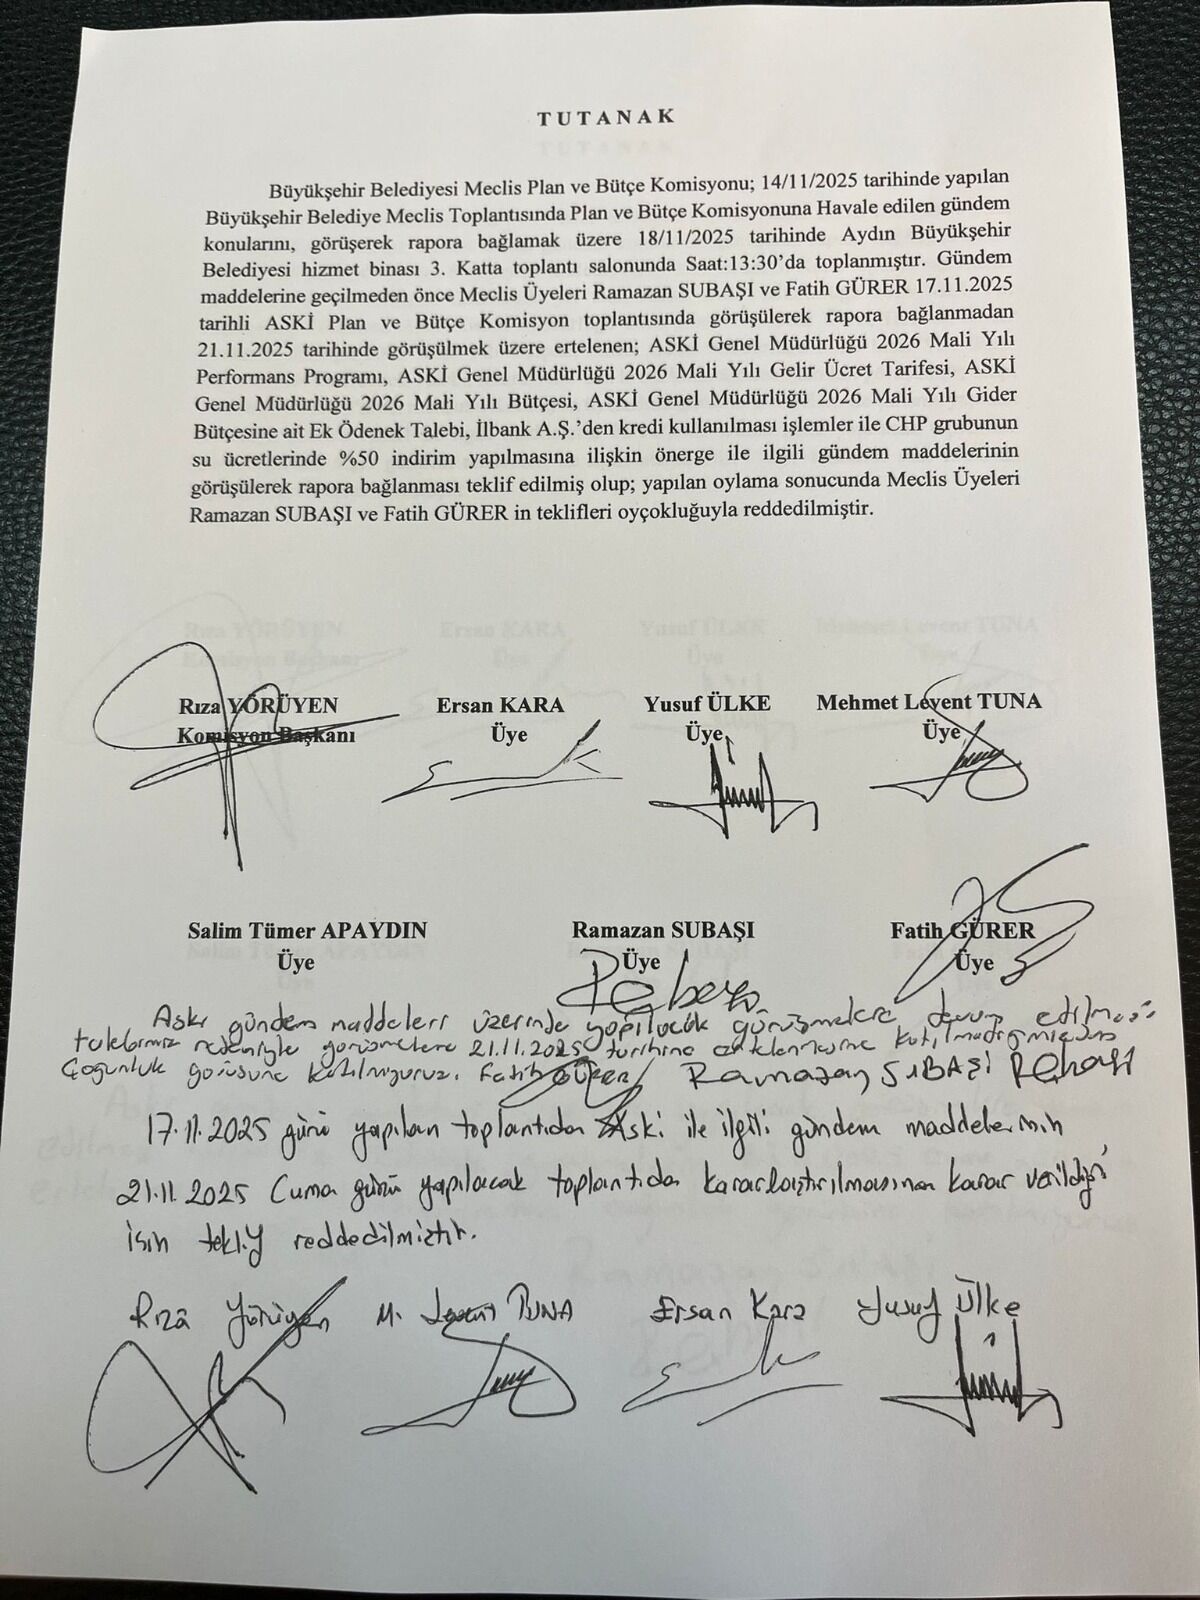 TUTANAK
Büyükşehir Belediyesi Meclis Plan ve Bütçe Komisyonu; 14/11/2025 tarihinde yapılan
Büyükşehir Belediye Meclis Toplantısında Plan ve Bütçe Komisyonuna Havale edilen gündem
konularını, görüşerek rapora bağlamak üzere 18/11/2025 tarihinde Aydın Büyükşehir
Belediyesi hizmet binası 3. Katta toplantı salonunda Saat:13:30'da toplanmıştır. Gündem
maddelerine geçilmeden önce Meclis Üyeleri Ramazan SUBAŞI ve Fatih GÜRER 17.11.2025
tarihli ASKİ Plan ve Bütçe Komisyon toplantısında görüşülerek rapora bağlanmadan
21.11.2025 tarihinde görüşülmek üzere ertelenen; ASKİ Genel Müdürlüğü 2026 Mali Yılı
Performans Programı, ASKİ Genel Müdürlüğü 2026 Mali Yılı Gelir Ücret Tarifesi, ASKİ
Genel Müdürlüğü 2026 Mali Yılı Bütçesi, ASKİ Genel Müdürlüğü 2026 Mali Yılı Gider
Bütçesine ait Ek Ödenek Talebi, İlbank A.Ş.'den kredi kullanılması işlemler ile CHP grubunun
su ücretlerinde %50 indirim yapılmasına ilişkin önerge ile ilgili gündem maddelerinin
görüşülerek rapora bağlanması teklif edilmiş olup; yapılan oylama sonucunda Meclis Üyeleri
Ramazan SUBAŞI ve Fatih GÜRER in teklifleri oyçokluğuyla reddedilmiştir.
Rıza YÖRÜYEN Ersan KARA Yusuf ÜLKE Mehmet Levent TUNA
Komisyon Başkanı Üye Üye Üye
Salim Tümer APAYDIN Ramazan SUBAŞI Fatih GÜRER
Üye Üye Üye
Aski gündem maddeleri üzerinde yapılacak görüşmelere devam edilmesi
nedeniyle görüşmelere 21.11.2025 tarihine ertelenmesine katılmadığımızdan
Çoğunluk görüşüne katılmıyoruz. Fatih GÜRER Ramazan SUBAŞI
17.11.2025 günü yapılan toplantıda Aski ile ilgili gündem maddelerinin
21.11.2025 Cuma günü yapılacak toplantıda kararlaştırılmasına karar verildiği
için teklif reddedilmiştir.
Rıza Yörüyen M. Levent TUNA Ersan Kara Yusuf Ülke